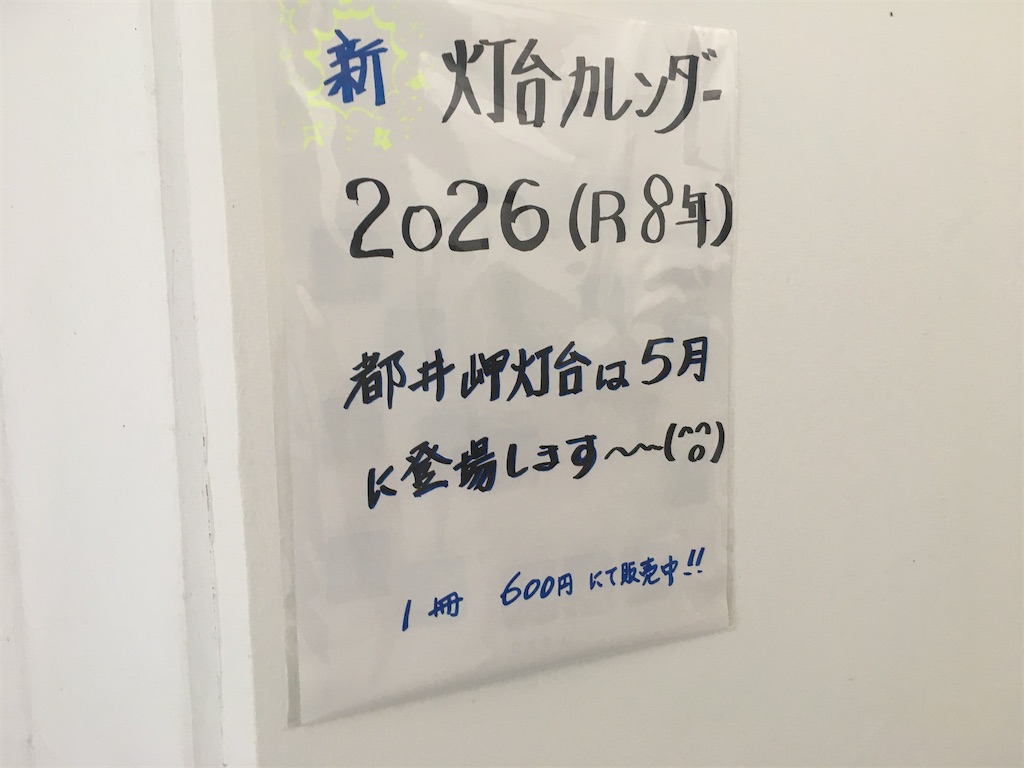 新 灯台カレンダー
2026(R8年)
都井岬灯台は5月
に登場します〜〜(^o^)
1冊 600円にて販売中!!